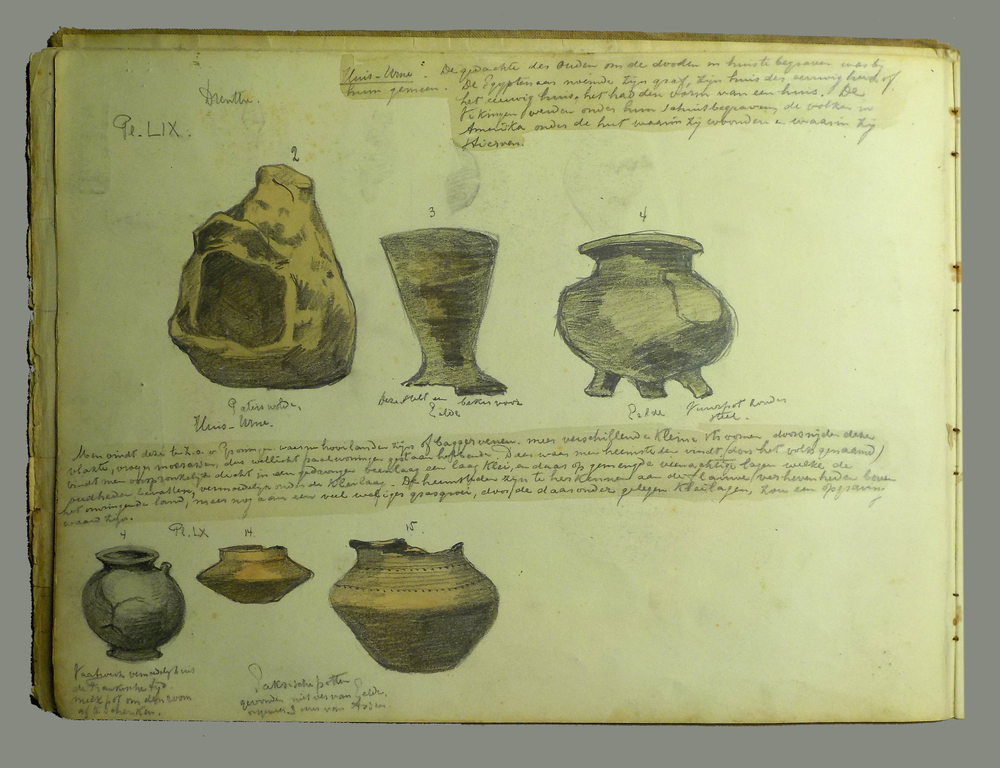 Drenthe.
Pl. LIX.
Huis-Urne: De gedachte des Ouden om de dooden in huis te begraven was bij
hun gemeen. De Egyptenaar noemde zijn graf, zijn huis der eeuwigheid of
het eeuwig huis. het had den vorm van een huis. De
Vikingen werden onder hun schuit begraven, de volken in
Amerika onder de hut waarin zij woonden en waarin zij
stierven.
2
3
4
Paterswolde.
Huis-Urne.
beker voor
Zelde
Vuurpot zonder
steel.
Men vindt deze of Baggervenen. meer verschillende kleine stroomen doorsnijden deze
vlakte, vroeger moerassen, dus wellicht paalwoningen gestaan hebbende. Daar waar men heemsteden vindt (door het volk genaamd)
vindt men een laag klei, en daar op gemengde veenachtige lagen welke de
oudheden bevatten, vermoedelijk onder de kleilaag. De heemsteden zijn te herkennen aan verhevenheden boven
het omringende land, meer nog aan een veel weliger grasgroei, door de daaronder gelegen kleilagen, zou een opgraving
waard zijn.
Pl. LX
4
14.
15.
Vaatwerk vermoedelijk uit
de Frankische tijd
melkpot om den room
af te schenken.
Saksische potten
gevonden van Zelde,
van Assen.